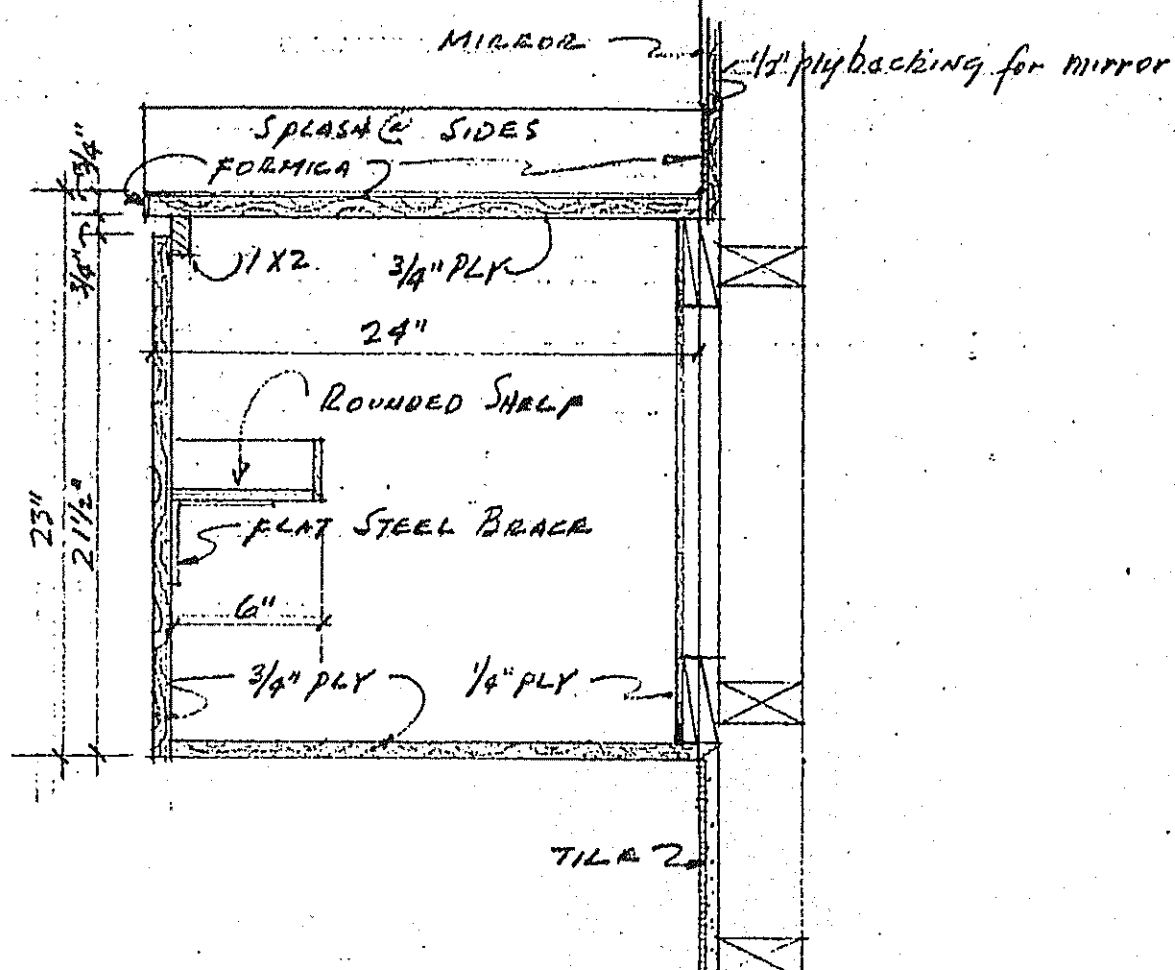 MIRROR
1/2" ply backing for mirror
SPLASH @ SIDES
FORMICA
3/4"
3/4"
1 X 2
3/4" PLY
24"
ROUNDED SHELF
23"
21 1/2"
FLAT STEEL BRACE
6"
3/4" PLY
1/4" PLY
TILE